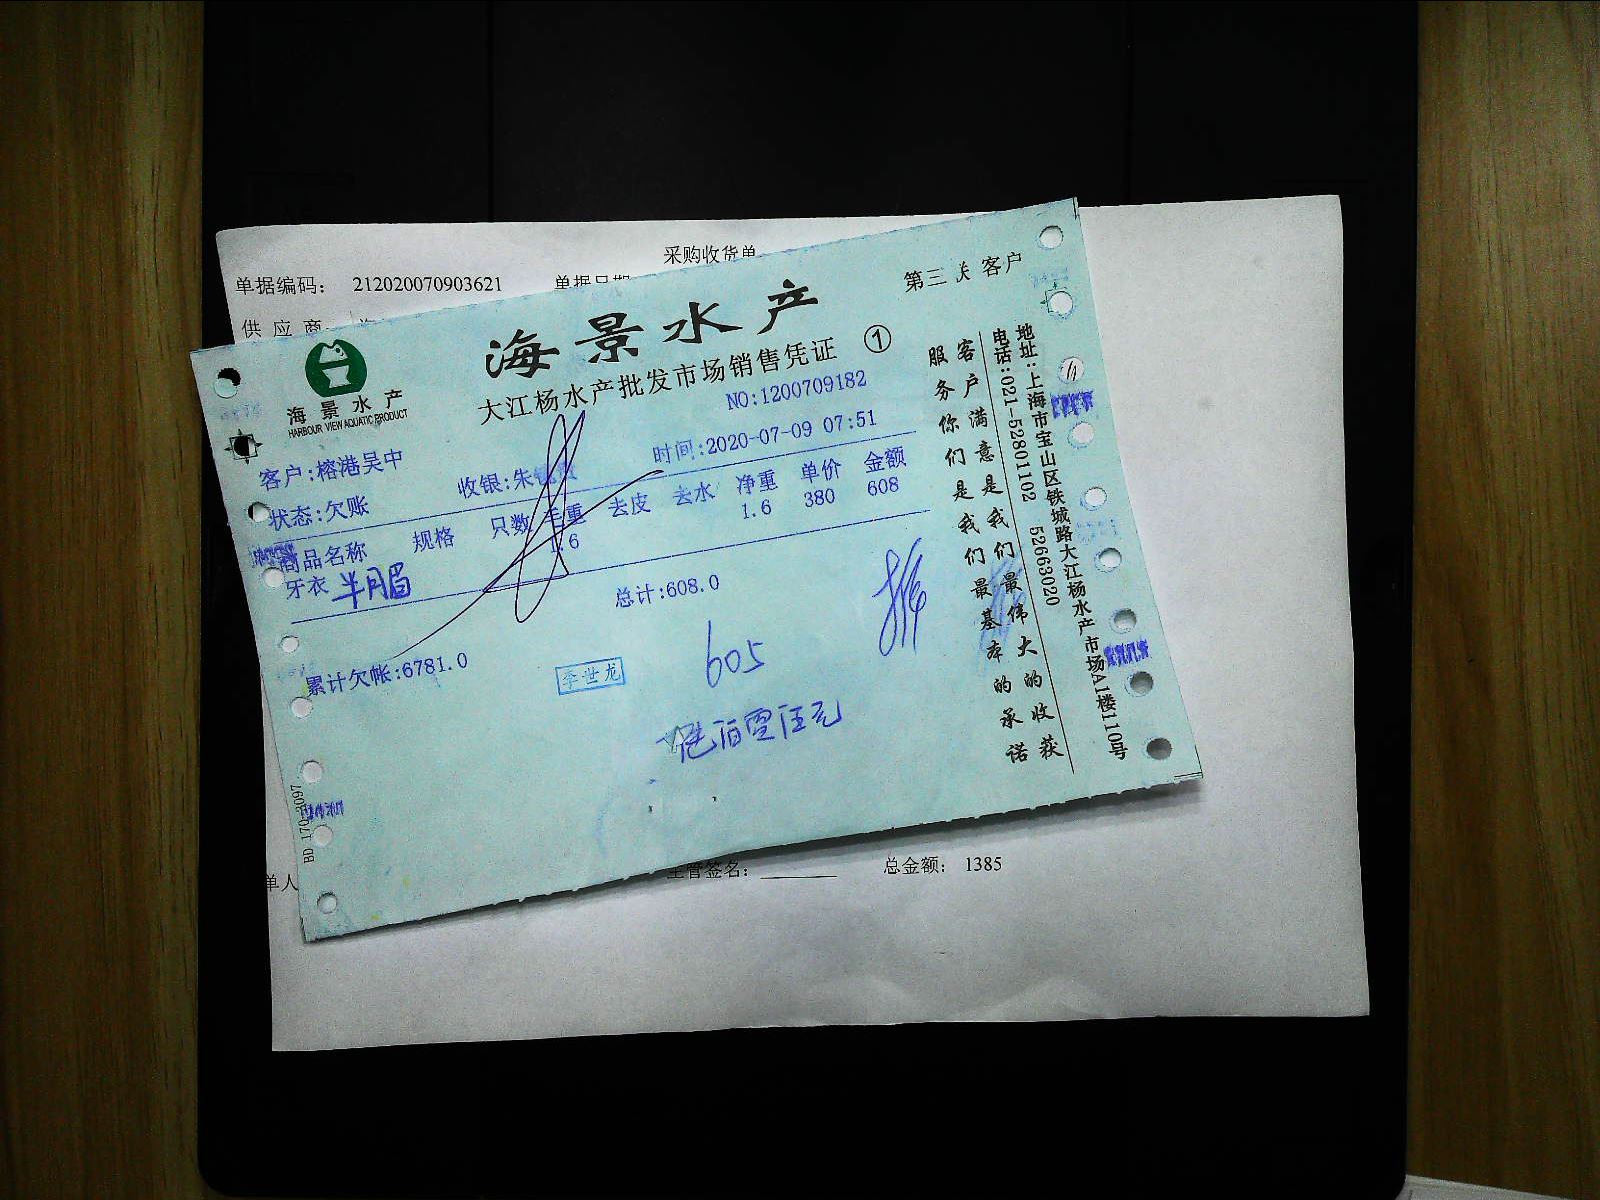 采购收货单
单据编码： 212020070903621 单据日期
供 应 商
第三 关 客户
海景水产
大江杨水产批发市场销售凭证 ①
海景水产
HARBOUR VIEW AQUATIC PRODUCT
NO:1200709182
客户:榕港吴中
收银:朱
时间:2020-07-09 07:51
状态:欠账
商品名称 规格 只数 毛重 去皮 去水 净重 单价 金额
牙衣 半月眉 1.6 1.6 380 608
总计:608.0
累计欠帐:6781.0
李世龙
605
陆佰零伍元
客户满意是我们最伟大的收获
服务你们是我们最基本的承诺
地址:上海市宝山区铁城路大江杨水产市场A1楼110号
电话:021-52801102 52663020
单人
主管签名：
总金额： 1385